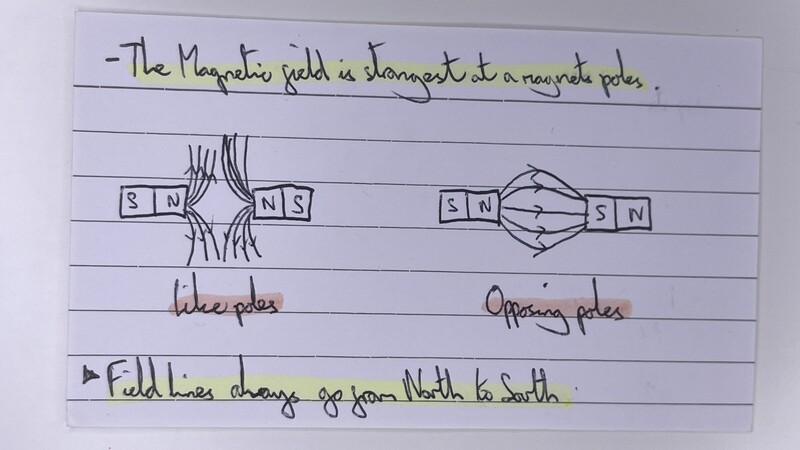 - The Magnetic field is strongest at a magnets poles.
S N N S S N S N
like poles Opposing poles
▶ Field lines always go from North to South.